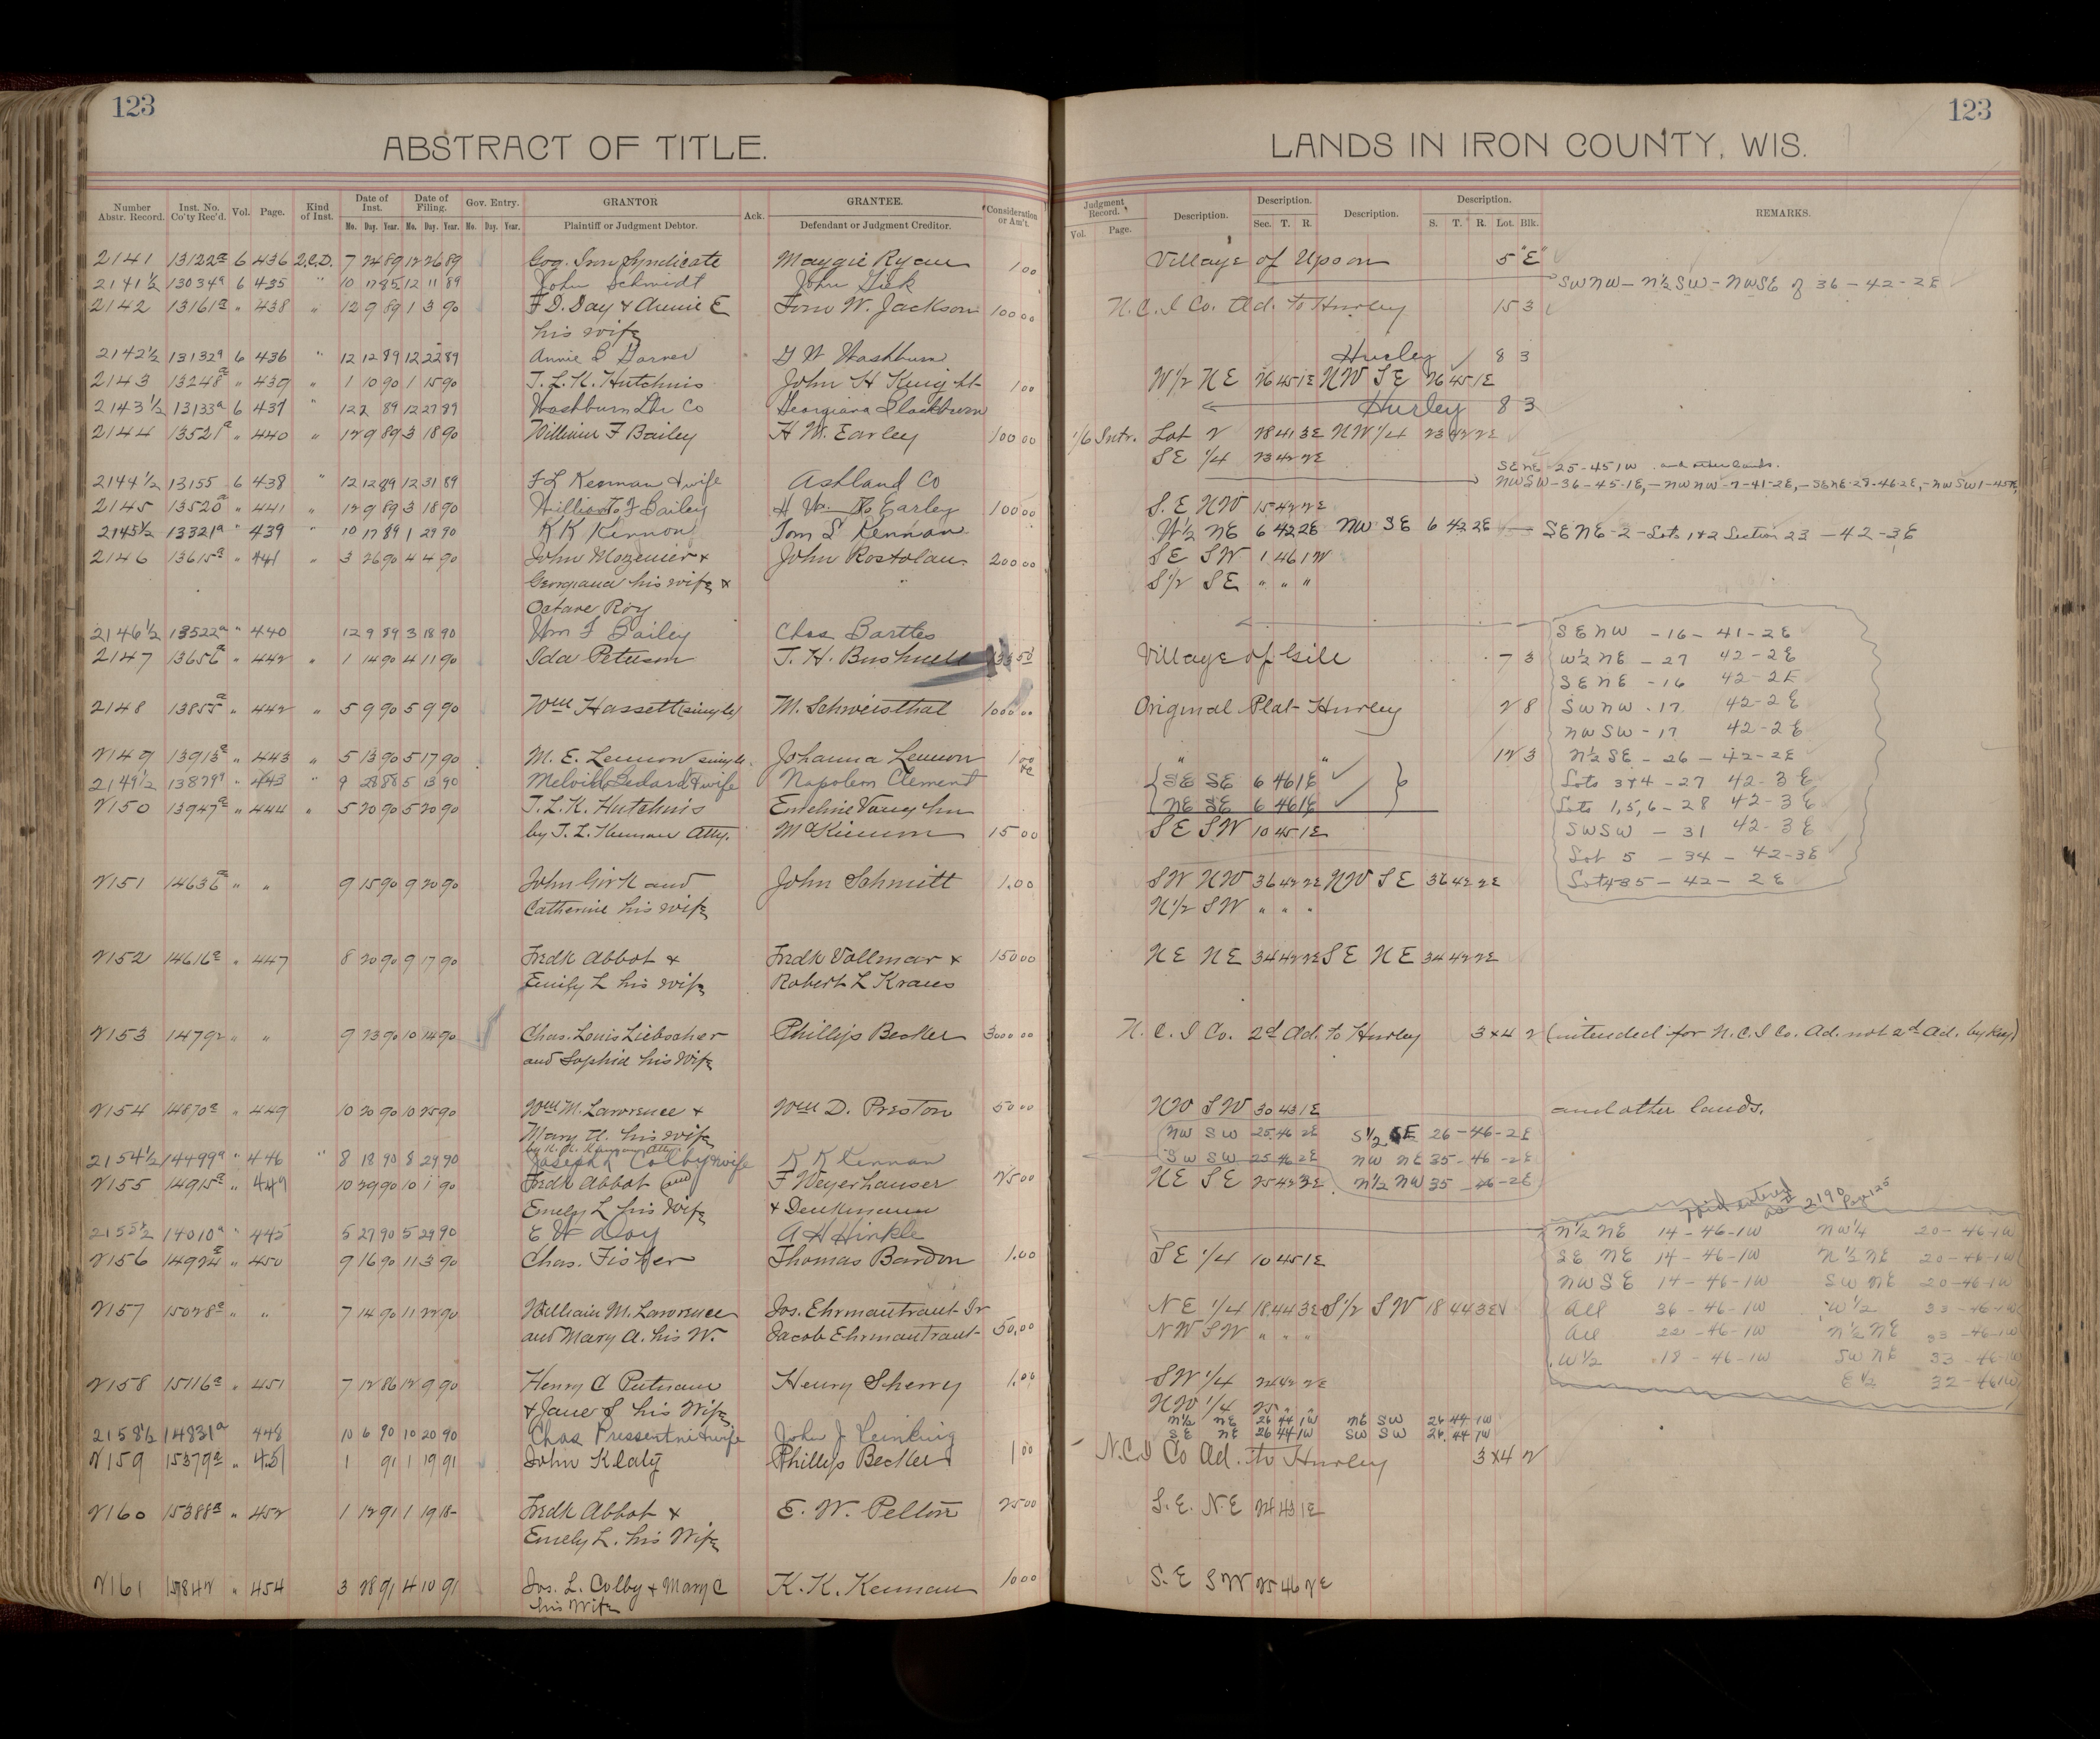 123
123
ABSTRACT OF TITLE.
LANDS IN IRON COUNTY, WIS.
Number Abstr. Record. Inst. No. Co'ty Rec'd. Vol. Page. Kind of Inst. Date of Inst. Mo. Day. Year. Date of Filing. Mo. Day. Year. Gov. Entry. Mo. Day. Year. GRANTOR Plaintiff or Judgment Debtor. Ack. GRANTEE. Defendant or Judgment Creditor. Consideration or Am't.
Judgment Record. Vol. Page. Description. Description. Sec. T. R. Description. Description. S. T. R. Lot. Blk. REMARKS.
2141 13122a 6 436 Q.C.D. 7 24 89 12 26 89 Gog. Iron Syndicate Maggie Ryan 1 00 Village of Upson 5 "E"
2141½ 13034a 6 435 " 10 17 85 12 11 89 John Schmidt John Gick SWNW – N½SW – NWSE of 36 – 42 – 2E
2142 13161a " 438 " 12 9 89 1 3 90 F. D. Day & Annie E Tom W. Jackson 100 00 N. C. I Co. Ad. to Hurley 15 3
his wife
2142½ 13132a 6 436 " 12 12 89 12 22 89 Annie B Garner G W Washburn Hurley 8 3
2143 13248a " 439 " 1 10 90 1 15 90 T. L. K. Hutchins John H Knight 1 00 W½ NE 26 45 1E NW SE 26 45 1E
2143½ 13133a 6 437 " 12 2 89 12 27 89 Washburn Lbr Co Georgiana Blackburn Hurley 8 3
2144 13521a " 440 " 12 9 89 3 18 90 William F Bailey H W. Earley 100 00 1/6 Intr. Lot 2 28 41 3E NW¼ 23 42 2E
SE ¼ 23 42 2E
SENE – 25 – 45 1W and other lands.
2144½ 13155 6 438 " 12 12 89 12 31 89 F L Kennan & wife Ashland Co NWSW – 36 – 45 – 1E, – NWNW – 7 – 41 – 2E, – SENE – 29 – 46 – 2E, – NWSW 1 – 45
2145 13520a " 441 " 12 9 89 3 18 90 William F Bailey H W. Earley 100 00 S. E NW 15 42 2E
2145½ 13321a " 439 " 10 17 89 1 29 90 K K Kennan Tom S Kennan W½ NE 6 42 2E NW SE 6 42 2E SENE – 2 – Lots 1+2 Section 23 – 42 – 3E
2146 13615a " 441 " 3 26 90 4 4 90 John Mozemier & John Rostolan 200 00 SE SW 1 46 1W
Georgiana his wife & S½ SE " " "
Octave Roy
2146½ 13522a " 440 12 9 89 3 18 90 Wm F Bailey Chas Bartles SENW – 16 – 41 – 2E
2147 13656a " 442 " 1 14 90 4 11 90 Ida Peterson T. H. Bushnell Village of Gile 7 3 W½ NE – 27 42 – 2E
SENE – 16 42 – 2E
2148 13855a " 442 " 5 9 90 5 9 90 Wm Hassett (single) M. Schweisthal 1000 00 Original Plat Hurley 2 8 SWNW – 17 42 – 2E
NWSW – 17 42 – 2E
2149 13913a " 443 " 5 13 90 5 17 90 M. E. Lennon single Johanna Lennon 1 00 &c " " 12 3 N½ SE – 26 – 42 – 2E
2149½ 13879a " 443 " 9 28 88 5 13 90 Melvill Bedard & wife Napoleon Clement SE SE 6 46 1E Lots 3+4 – 27 42 – 3E
2150 13947a " 444 " 5 20 90 5 20 90 T. L. K. Hutchins Emeline Vaughn NE SE 6 46 1E Lots 1, 5, 6 – 28 42 – 3E
by T. L. Kennan Atty. McKinnon 15 00 SE SW 10 45 1E SWSW – 31 42 – 3E
Lot 5 – 34 – 42 – 3E
2151 14636a " " 9 15 90 9 20 90 John Girk and John Schmitt 1.00 SW NW 36 42 2E NW SE 36 42 2E Lot 4 35 – 42 – 2E
Catherine his wife N½ SW " " "
2152 14616a " 447 8 20 90 9 17 90 Fredk Abbot & Fredk Vollmar & 150 00 NE NE 34 42 2E SE NE 34 42 2E
Emily L his wife Robert L Kraus
2153 14792 " " 9 23 90 10 14 90 Chas. Louis Liebscher Phillip Becker 3000 00 N. C. I Co. 2d Ad. to Hurley 3 & 4 2 (intended for N. C. I Co. Ad. not 2d Ad. by Key)
and Sophie his Wife
2154 14870a " 449 10 20 90 10 25 90 Wm M. Lawrence & Wm D. Preston 50 00 NW SW 30 43 1E and other lands.
Mary A. his wife NW SW 25 46 2E S½ SE 26 – 46 – 2E
2154½ 14499a " 446 " 8 18 90 8 29 90 Joseph L Colby & wife K K Kennan SW SW 25 46 2E NW NE 35 – 46 – 2E
2155 14915a " 449 10 29 90 10 1 90 Fredk Abbot and F Weyerhauser 25 00 NE SE 25 42 3E N½ NW 35 – 46 – 2E
Emely L his Wife & Denkmann entered as 2190 Page 125
2155½ 14010a " 445 5 27 90 5 29 90 E W Day A H Hinkle N½ NE 14 – 46 – 1W NW¼ 20 – 46 – 1W
2156 14924a " 450 9 16 90 11 3 90 Chas. Fisher Thomas Bardon 1.00 SE ¼ 10 45 1E SE NE 14 – 46 – 1W N½ NE 20 – 46 – 1W
NWSE 14 – 46 – 1W SW NE 20 – 46 – 1W
2157 15028a " " 7 14 90 11 22 90 William M. Lawrence Jos. Ehrmantraut Jr 50.00 NE ¼ 18 44 3E S½ SW 18 44 3E All 36 – 46 – 1W W½ 33 – 46 – 1W
and Mary A. his W. Jacob Ehrmantraut NW SW " " " All 22 – 46 – 1W N½ NE 33 – 46 – 1W
W½ 18 – 46 – 1W SW NE 33 – 46 – 1W
2158 15116a " 451 7 12 86 12 9 90 Henry C Putnam Henry Sherry 1.00 SW ¼ 24 42 2E E½ 32 – 46 1W
& Jane S his Wife NW ¼ 25 " "
N½ NE 26 44 1W NE SW 26 44 1W
2158½ 14831a 448 10 6 90 10 20 90 Chas wife John J Leinking SE NE 26 44 1W SW SW 26 44 1W
2159 15379a " 451 1 91 1 19 91 John Klaty Phillip Becker 1 00 N.C.I Co Ad. to Hurley 3 & 4 2
2160 15388a " 452 1 12 91 1 19 18– Fredk Abbot & E. W. Pelton 25 00 S. E. N. E 24 43 1E
Emely L. his Wife
2161 15842 " 454 3 28 91 4 10 91 Jos. L. Colby & Mary C K. K. Kennan 10 00 S. E SW 25 46 2E
his Wife